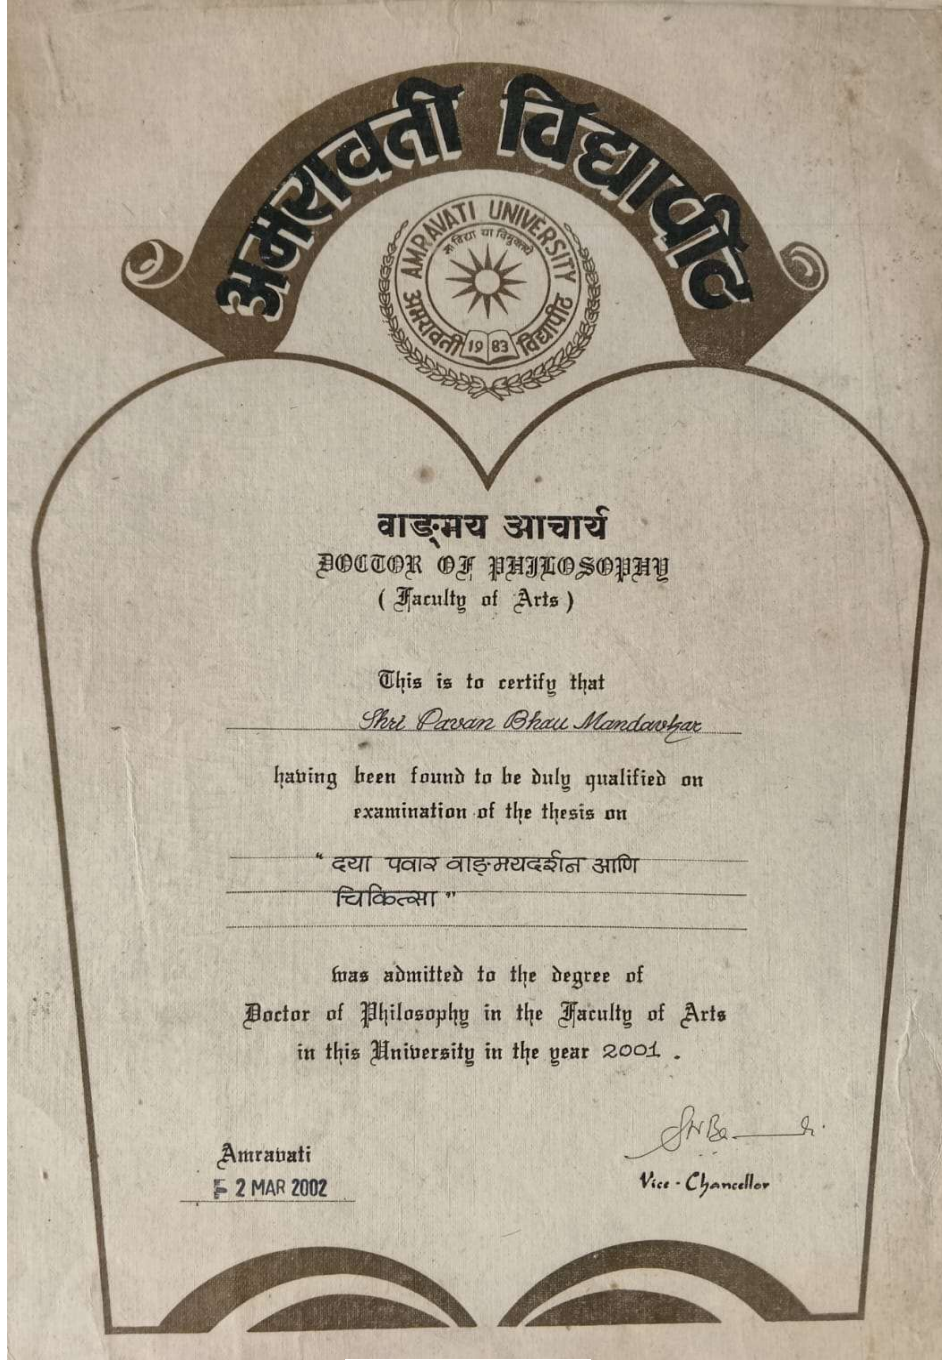 अमरावती विद्यापीठ
AMRAVATI UNIVERSITY
सा विद्या या विमुक्तये
अमरावती विद्यापीठ
1983
वाङ्‌मय आचार्य
DOCTOR OF PHILOSOPHY
( Faculty of Arts )
This is to certify that
Shri Pavan Bhau Mandavkar
having been found to be duly qualified on
examination of the thesis on
“ दया पवार वाङ्‌मयदर्शन आणि
चिकित्सा ”
was admitted to the degree of
Doctor of Philosophy in the Faculty of Arts
in this University in the year 2001 .
Amravati
2 MAR 2002
Vice - Chancellor